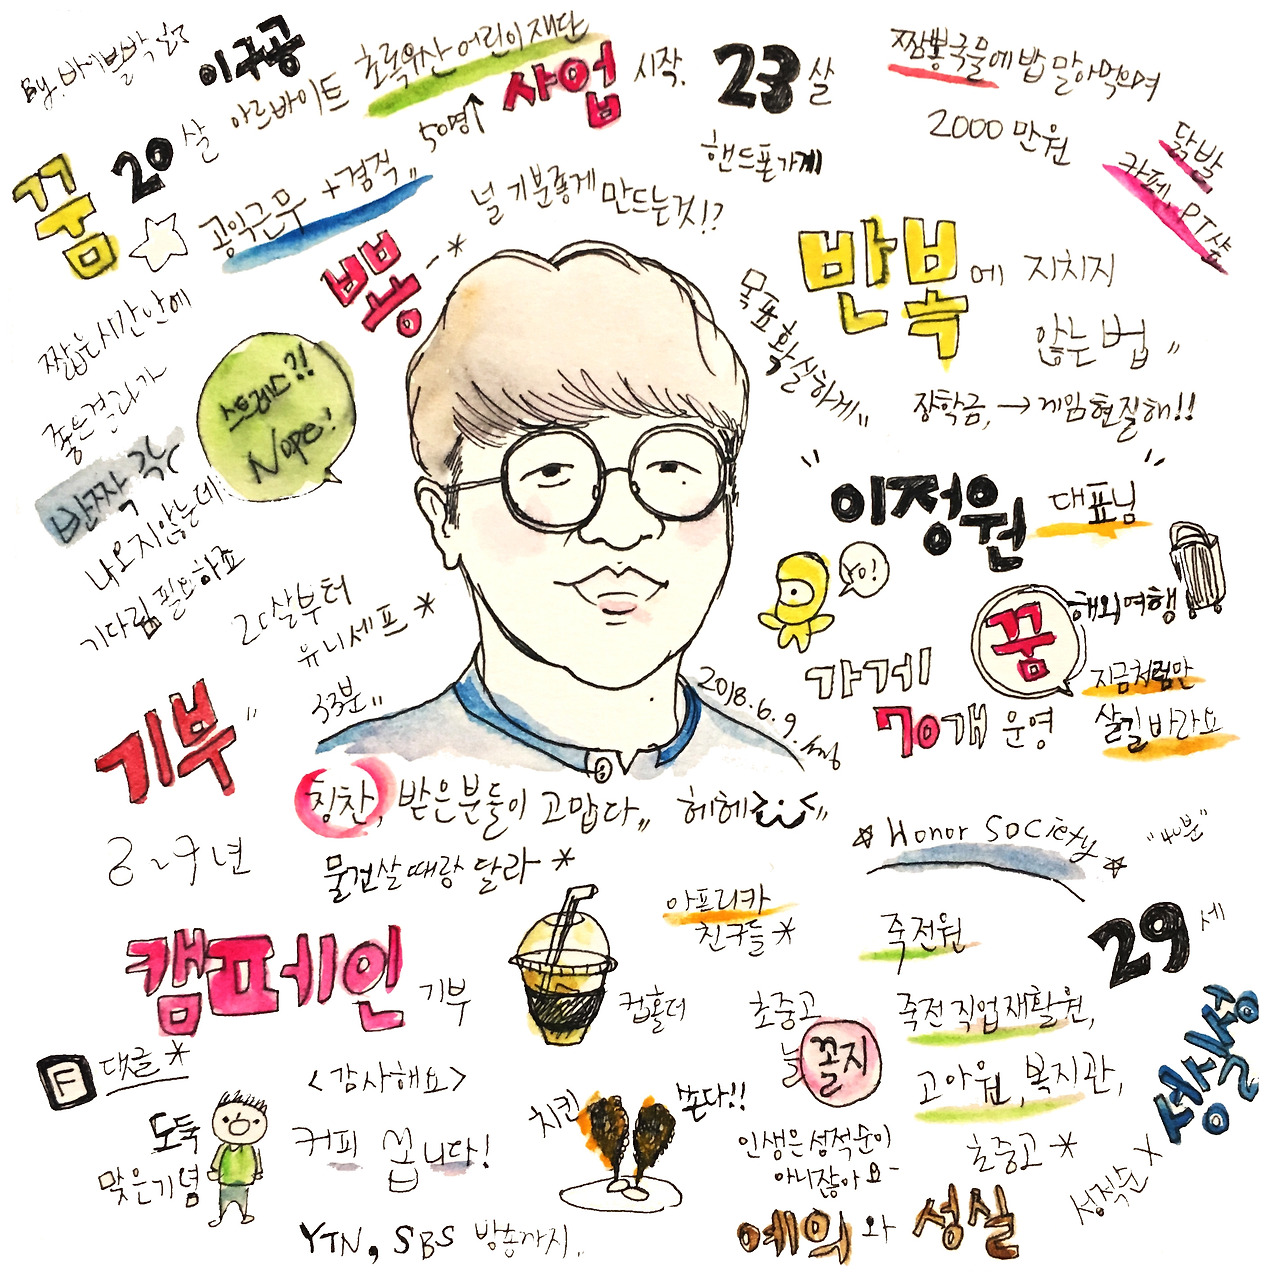 By. 바케빌박
이구공
20살
아르바이트
초록우산 어린이재단
50명↑
사업 시작.
23살
핸드폰가게
짬뽕국물에 밥 말아먹으며
2000 만원
닭박
카페, PT샵
꿈
공익근무 +겸직〃
뽕~*
널 기분좋게 만드는것!?
목표 확실하게〃
반복에 지치지
않는 법〃
장학금, → 게임현질해!!
짧은시간안에
좋은결과가
반짝 각
나오지않는데
기다림 필요하죠
스트레스?!
Nope!
" 이정원 " 대표님
20살부터
유니세프 *
기부〃
8~9년
꿈
해외여행
지금처럼만
살길 바라요
가게
70개 운영
2018. 6. 9.
칭찬, 받은분들이 고맙다〃 헤헤
물건살때랑 달라 *
Honor Society
"40분"
캠페인 기부
컵홀더
아프리카
친구들 *
죽전원
29세
초중고
늘 꼴지
죽전 직업재활원,
고아원, 복지관,
초중고 *
성실성
성적순 X
F 댓글 *
도둑
맞은기념
<감사해요>
커피 쏩니다!
치킨 쏜다!!
인생은 성적순이
아니잖아요~
예의와 성실
YTN, SBS 방송까지..